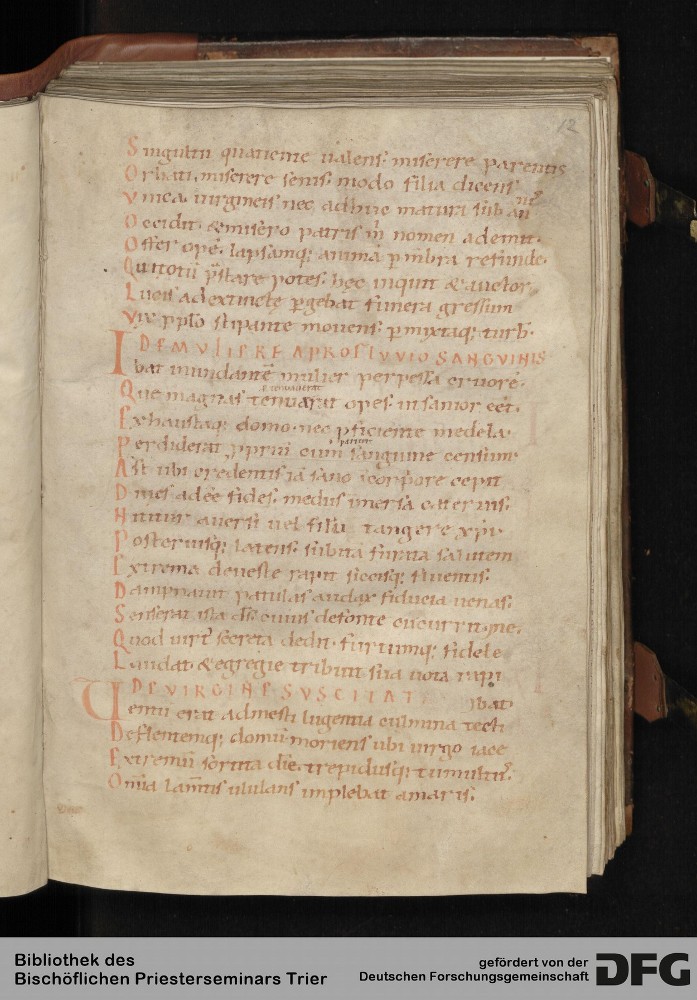 12
Singultu quatiente ualens. miserere parentis
Orbati. miserere senis. modo filia dicens
Vnica. uirgineis nec adhuc maturi sub annis
Occidit. & misero patris m̄ nomen ademit.
Offer opē. lapsamq; animā p mbra refunde.
Qui totū p̄stare potes. hęc inquit & auctor
Lucis ad extinctę p̄gebat funera gressum
Vix pplo stipante mouens. p mixtaq; turb.
DE MVLIERE A PROFLVVIO SANGVINIS
Ibat inundantē mulier perpessa cruorē.
Que magnas tenuarat opes. ut sanior eēt.
Exhaustaq; domo. nec pficiente medela.
Perdiderat pprii cum sanguine censum.
Ast ubi credentis iā sano ī corpore cepit
Diues adeē fides. medus inersa cateruis.
Nititur auersi uel fila tangere xp̄i.
Posteriusq; latens. subita furata salutem
Extrema de ueste rapit siccisq; fluentis.
Dampnauit patulas audax fiducia uenas.
Senserat ista ds̄ cuius de fonte cucurrit.
Quod uirt̄ secreta dedit. furtumq; fidele
Laudat. & egregie tribuit sua uota rapi
DE VIRGINE SVSCITAT
Uentū erat ad mesti lugentia culmina tecti
Deflentemq; domū moriens ubi uirgo iace
bat.
Extremū sortita diē. trepidusq; tumultus
Omīa lam̄tis ululans implebat amaris.
Bibliothek des
Bischöflichen Priesterseminars Trier
gefördert von der
Deutschen Forschungsgemeinschaft
DFG